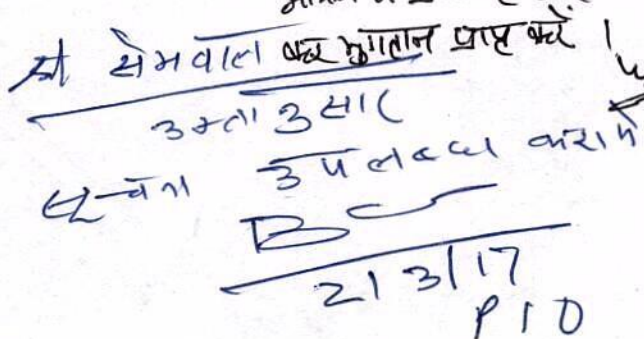 श्री सेमवाल कर भुगतान प्राप्त करें ।
उक्तानुसार
सूचना उपलब्ध कराये
2/3/17
PIO